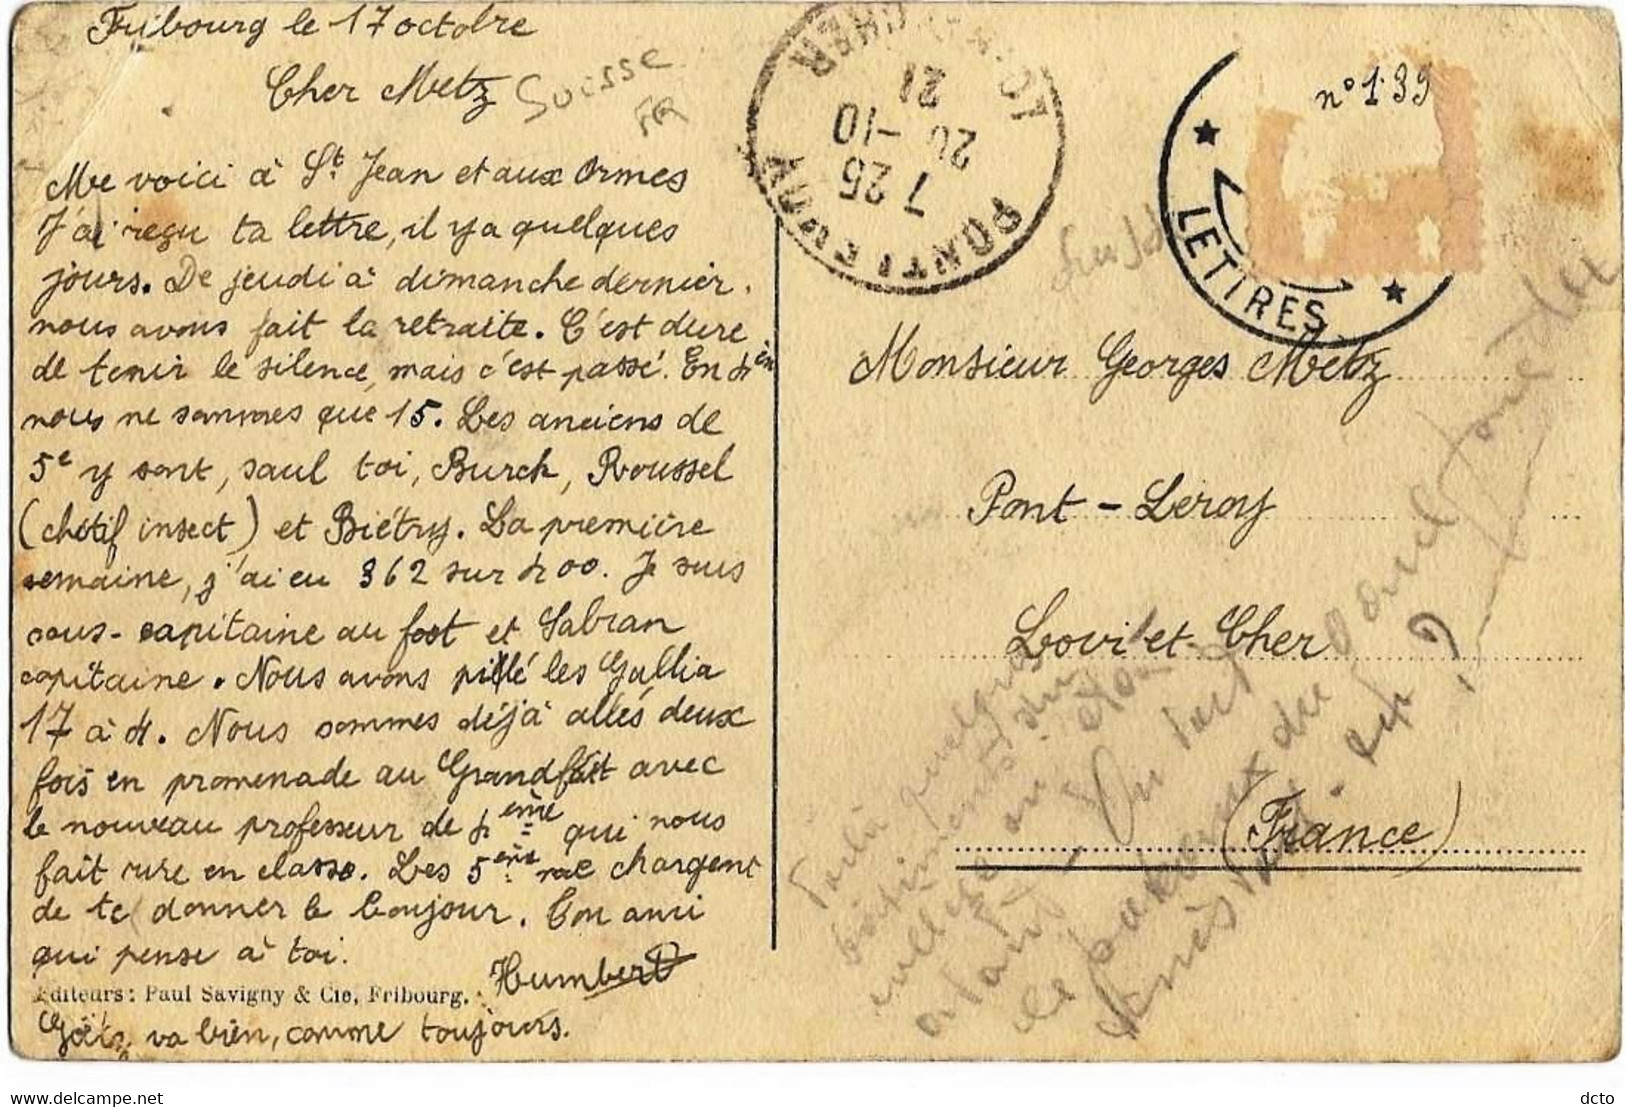 Fribourg le 17 octobre
Cher Metz
Suisse
FR
Me voici à St. Jean et aux Ormes
J'ai reçu ta lettre, il y a quelques
jours. De jeudi à dimanche dernier.
nous avons fait la retraite. C'est dure
de tenir le silence, mais c'est passé. En 4ièm
nous ne sommes que 15. Les anciens de
5e y sont, sauf toi, Burck, Roussel
(chétif insect) et Biétry. La première
semaine, j'ai eu 362 sur 400. Je suis
sous-capitaine au foot et Sabran
capitaine. Nous avons pilé les Gallia
17 à 4. Nous sommes déjà allés deux
fois en promenade au Grandfeit avec
le nouveau professeur de 4ème qui nous
fait rire en classe. Les 5ème me chargent
de te donner le bonjour. Ton ami
qui pense à toi.
Humbert
Editeurs: Paul Savigny & Cie, Fribourg.
Götz va bien, comme toujours.
PONTLEVOY
LOIR-ET-CHER
7 25
20 -10
21
n° 139
LETTRES
Monsieur Georges Metz
Pont-Leroy
Loviret-Cher
(France)
Voilà quelques
bâtiments du
collège où
le
?
dcto